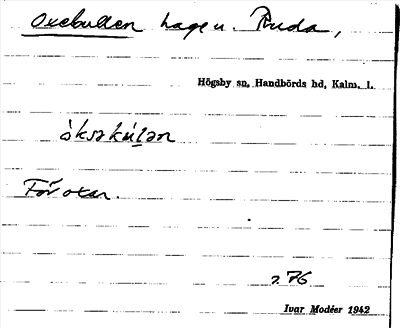 Oxebullen hage u. Ruda,
Högsby sn, Handbörds hd, Kalm. l.
òksəkúlən
För oxar.
76
Ivar Modéer 1942